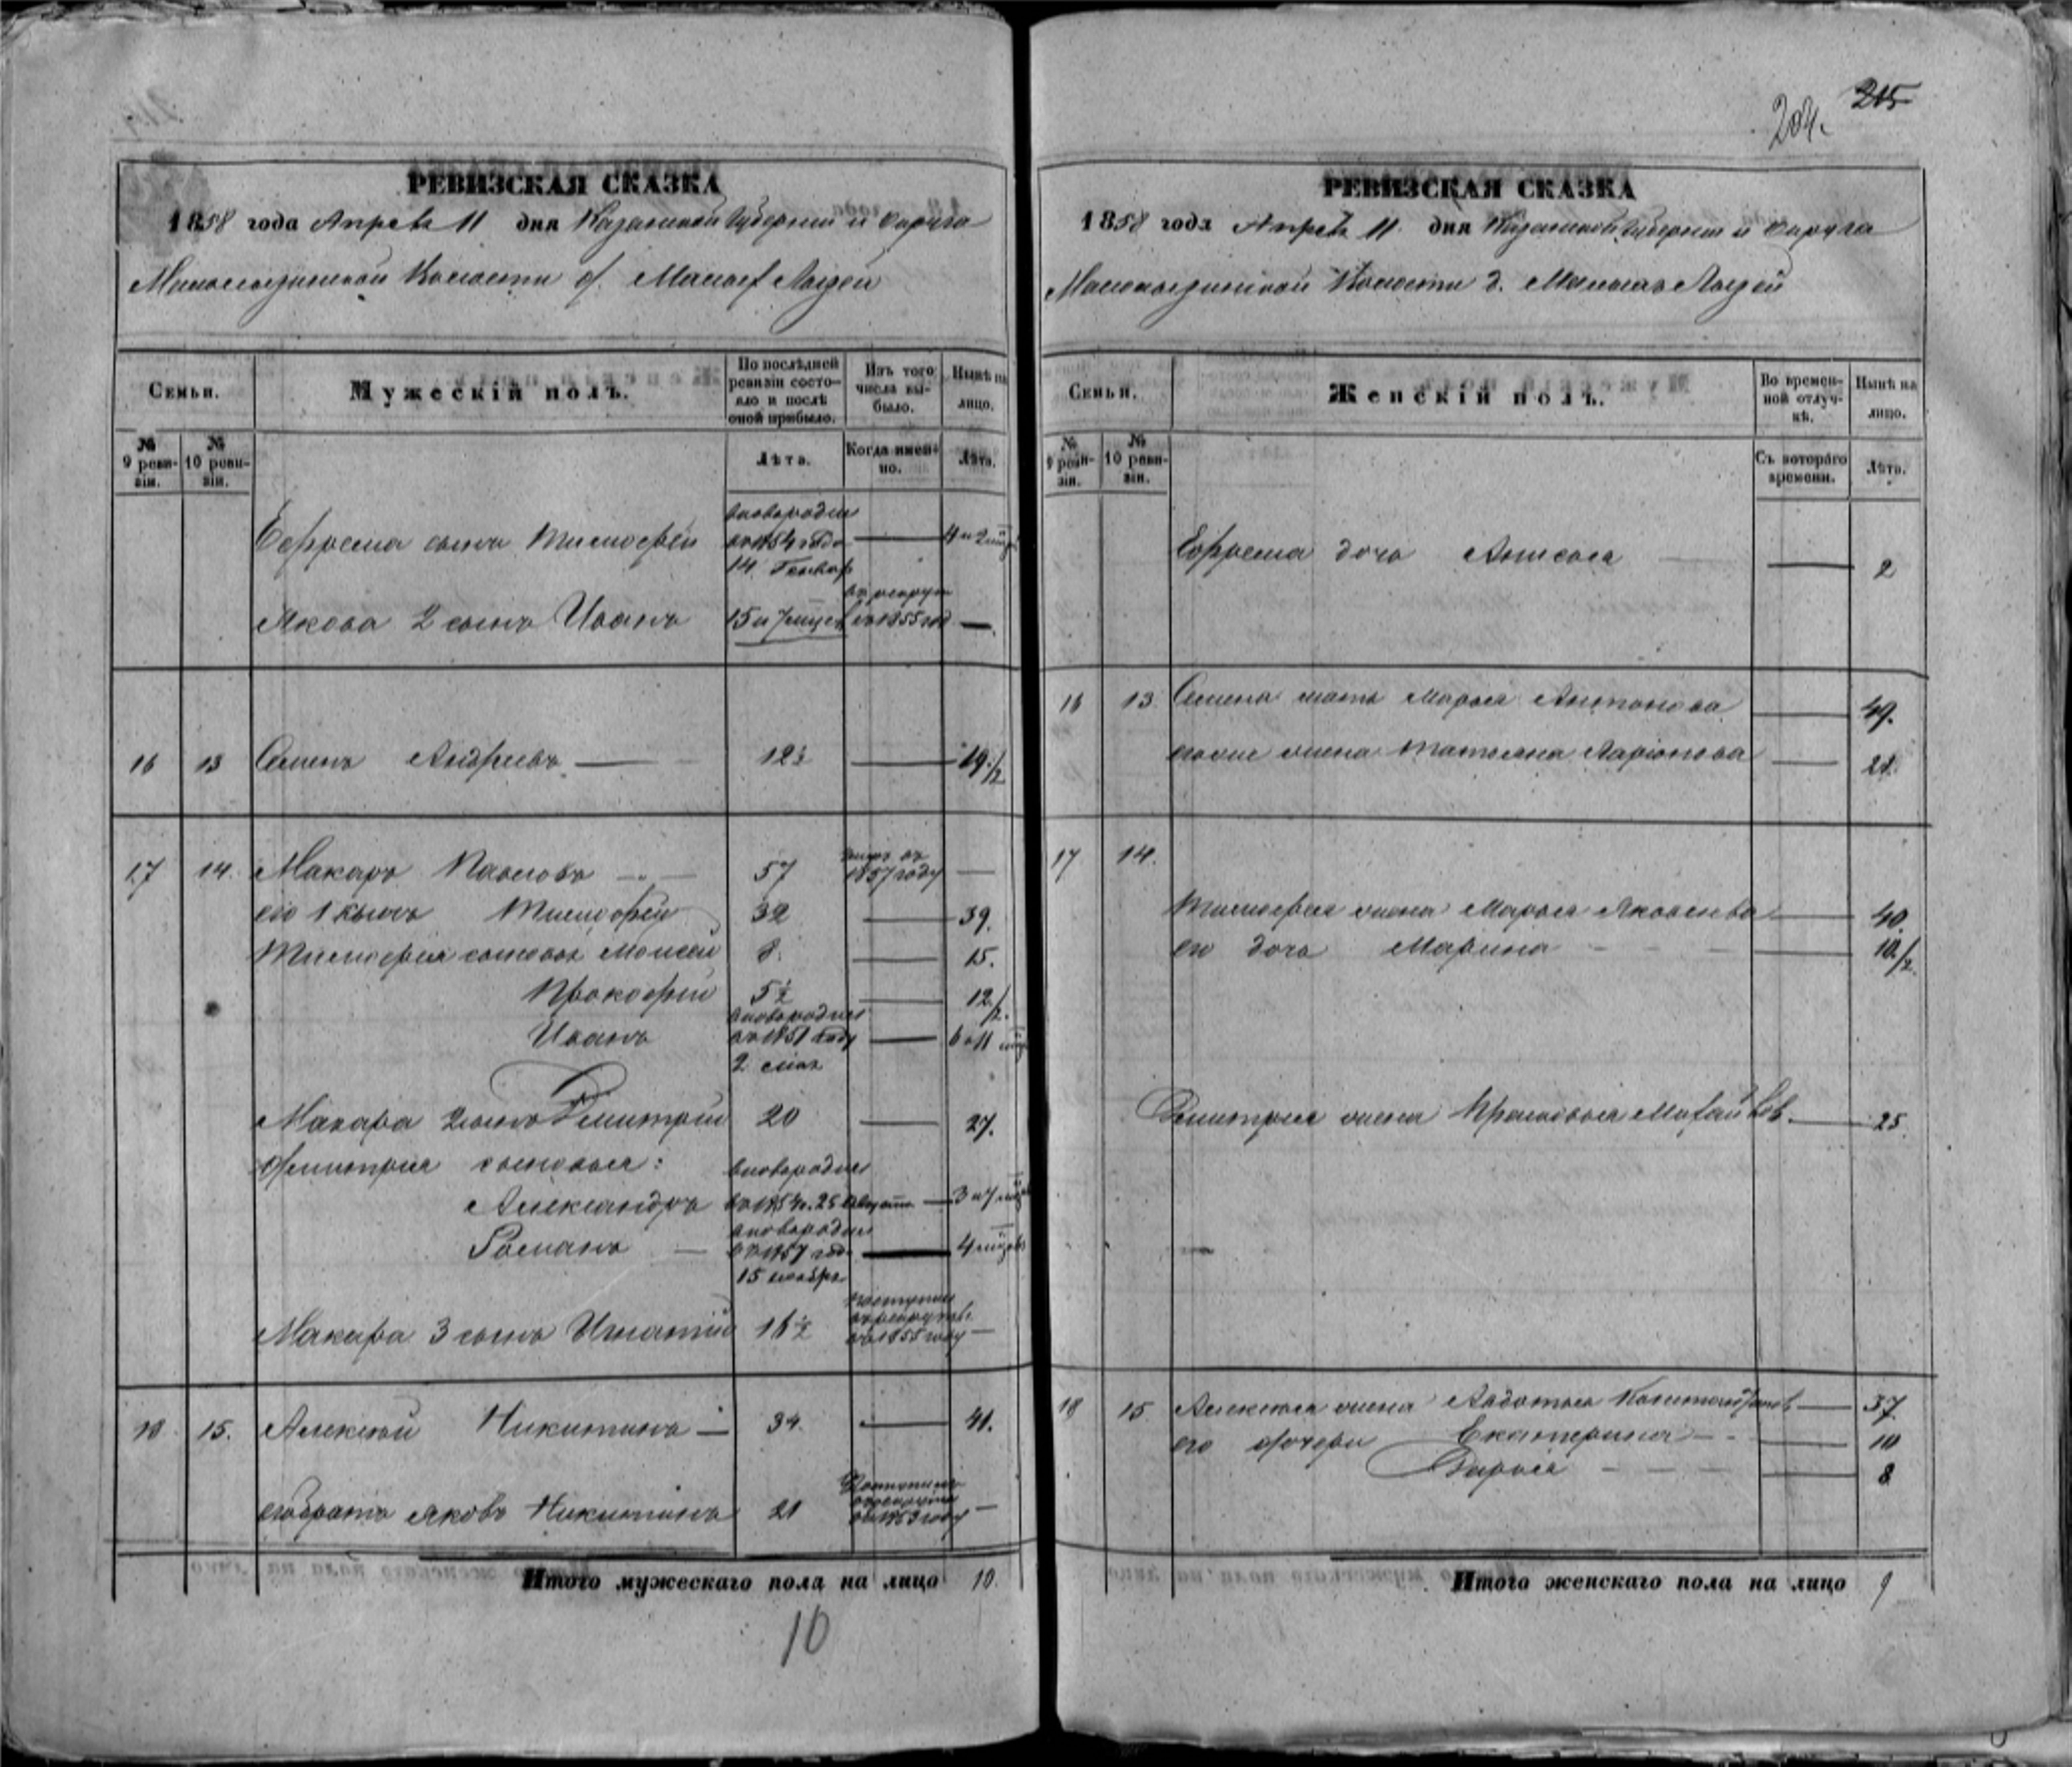 204. 215
РЕВИЗСКАЯ СКАЗКА
1858 года Апреля 11 дня Казанской Губернии и Округа
Волости д. Малых Лызей
Семьи.
Мужескій полъ.
По послѣдней ревизіи состояло и послѣ оной прибыло.
Изъ того числа выбыло.
Нынѣ на лицо.
№ 9 ревизіи.
№ 10 ревизіи.
Лѣта.
Когда именно.
Лѣта.
Ефрема сынъ Тимофей вновородился въ 1854 года 14 Генвар 4 и 2 мѣс
Якова 2 сынъ Иванъ 15 и 7 мѣсяц въ рекруты въ 1855 год —
16 13 Семенъ Андреевъ 12½ — 19/2
17 14. Макаръ Павловъ 57 умеръ въ 1857 году —
его 1 сынъ Тимофей 32 — 39.
Тимофея сыновья Моисей 8. — 15.
Прокофій 5½ — 12/2.
Иванъ вновородился въ 1851 году 2 мая — 6 и 11 мѣс
Макара 2 сынъ Дмитрій 20 — 27.
Дмитрия сыновья:
Александръ вновородился въ 1854 г. 25 августа — 3 и 7 мѣс
Романъ вновородился въ 1857 год 15 ноября — 4 мѣсяцовъ
Макара 3 сынъ Игнатій 16½ поступилъ въ рекруты въ 1855 году —
18 15. Алексѣй Никитинъ — 34. — 41.
его братъ Яковъ Никитинъ 21 поступилъ въ рекруты въ 1853 году —
Итого мужескаго пола на лицо 10.
10
РЕВИЗСКАЯ СКАЗКА
1858 года Апреля 11. дня Казанской Губернии и Округа
Волости д. Малыхъ Лызей
Семьи.
Женскій полъ.
Во временной отлучкѣ.
Нынѣ на лицо.
№ 9 ревизіи.
№ 10 ревизіи.
Съ котораго времени.
Лѣта.
Ефрема дочь Анисья — 2
16 13 Семена мать Марья Антонова — 49.
его же жена Татьяна Ларіонова — 21.
17 14.
Тимофея жена Марья Яковлева — 40.
его дочь Марина — 10/2.
Дмитрия жена Прасковья — 25.
18 15. Алексѣя жена Авдотья — 37
его дочери Екатерина — 10
Дарья — 8
Итого женскаго пола на лицо 9